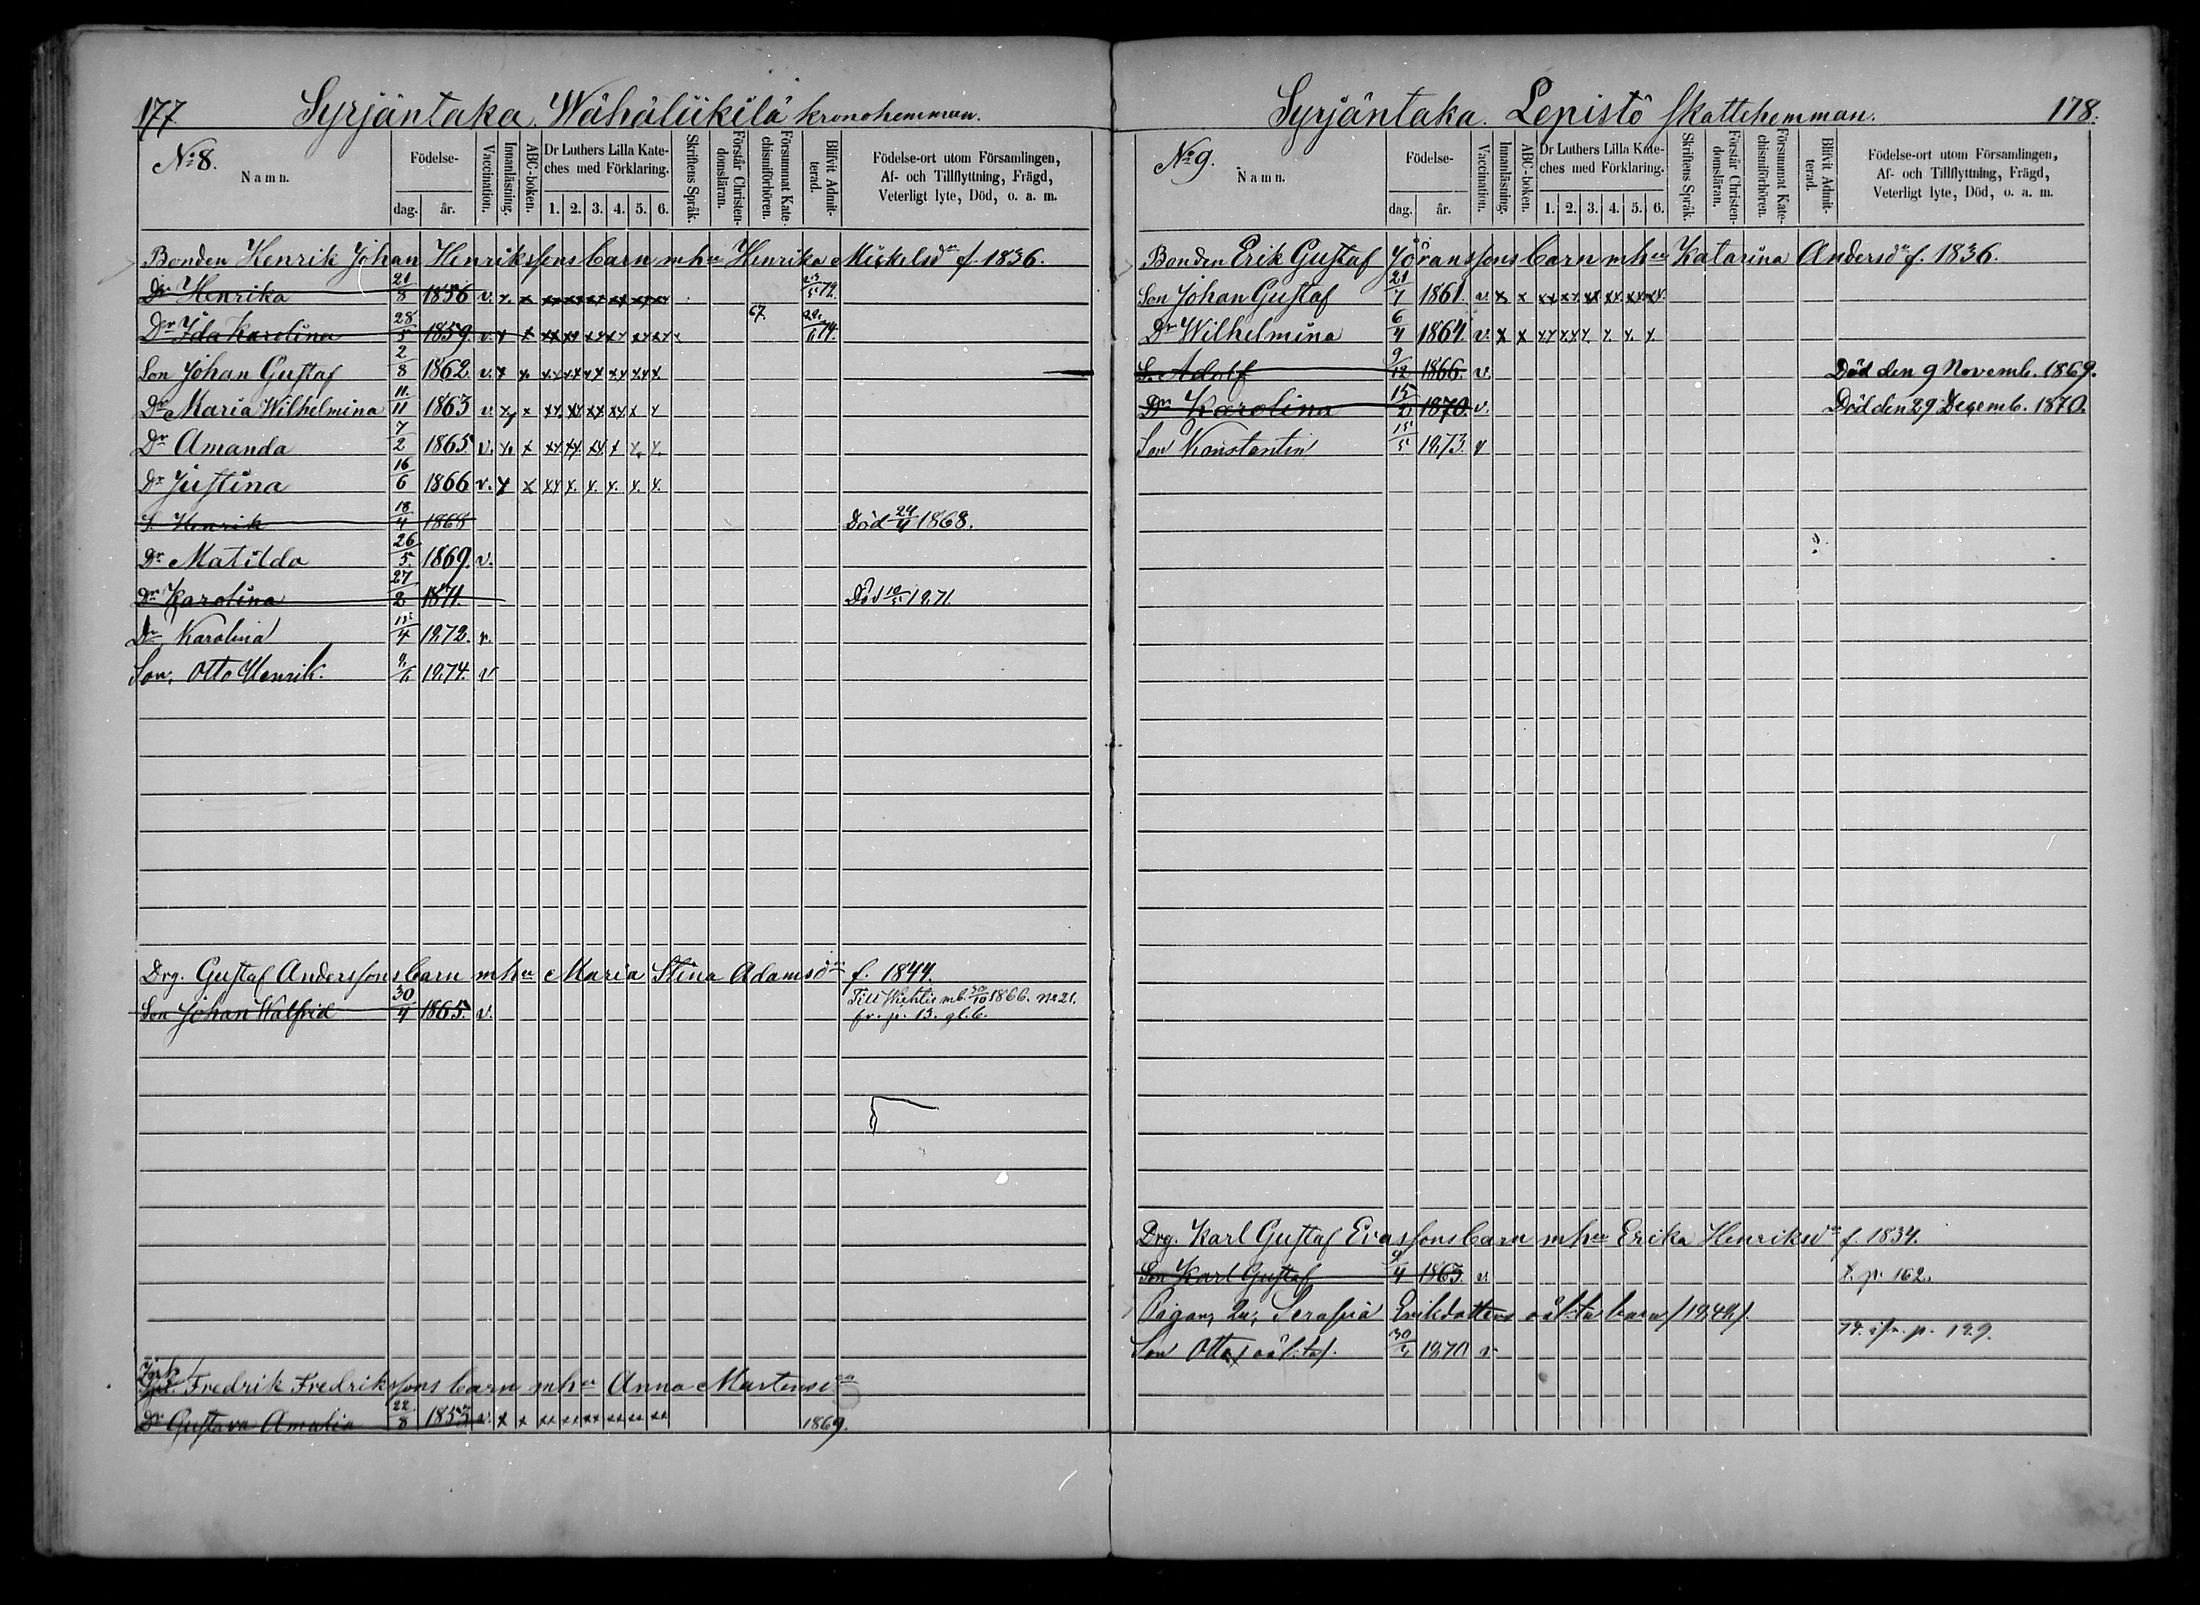 177 Syrjäntaka Wähäliikilä kronohemman.
No 8.
Namn.
Födelse-
dag. år.
Vaccination.
Innanläsning.
ABC-boken.
Dr Luthers Lilla Kate-
ches med Förklaring.
1. 2. 3. 4. 5. 6.
Skriftens Språk.
Förstår Christen-
domsläran.
Försummat Kate-
chismiförhören.
Blifvit Admit-
terad.
Födelse-ort utom Församlingen,
Af- och Tillflyttning, Frägd,
Veterligt lyte, Död, o. a. m.
Bonden Henrik Johan Henrikssons barn m hu Henrika Mickelsdr f. 1836.
Dr Henrika 21/8 1856 v. x. x xx xx xx xx xx xx 23/5 72.
Dr Ida Karolina 28/5 1859. v. x x xx xx xx xx xx xx 67. 74.
Son Johan Gustaf 2/8 1862. v. x x. xx xx xx xx xx x.
Dr Maria Wilhelmina 11/11 1863 v. x x xx. xx xx xx x x
Dr Amanda 7/2 1865 v. x. x xx xx. xx. x x. x.
Dr Justina 16/6 1866 v. x x xx x. x. x. x. x.
S. Henrik 18/4 1868 Död 24/4 1868.
Dr Matilda 26/5. 1869. v.
Dr Karolina 27/2 1871. Död 10/5 1871.
Dr Karolina 15/4 1872. v.
Son, Otto Henrik. 1874. v
Drg. Gustaf Anderssons barn m hu Maria Stina Adamsdr f. 1844.
Son Johan Walfrid 30/4 1865. v. Till Wichtis mb. 30/10 1866. No 21.
fr. p. 13. gl. b.
Fredrik Fredrikssons barn m hu Anna Martensdr
Dr Gustava Amalia 22/8 1853. v. x x xx xx xx xx xx xx 1869.
Syrjäntaka. Lepistö Skattehemman. 178.
No 9.
Namn.
Födelse-
dag. år.
Vaccination.
Innanläsning.
ABC-boken.
Dr Luthers Lilla Kate-
ches med Förklaring.
1. 2. 3. 4. 5. 6.
Skriftens Språk.
Förstår Christen-
domsläran.
Försummat Kate-
chismiförhören.
Blifvit Admit-
terad.
Födelse-ort utom Församlingen,
Af- och Tillflyttning, Frägd,
Veterligt lyte, Död, o. a. m.
Bonden Erik Gustaf Jöranssons barn m hu Katarina Andersdr f. 1836.
Son Johan Gustaf 21/7 1861. v. x x xx xx. xx xx. xx xx.
Dr Wilhelmina 6/4 1864. v. x x xx xx x. x. x. x.
S. Adolf 9/12 1866. v. Död den 9 Novemb. 1869.
Dr Karolina 15/2 1870. v. Död den 29 Decemb. 1870.
Son Konstantin 15/5 1873. v
Drg. Karl Gustaf Evassons barn m hu Erika Henriksdr f. 1834.
Son Karl Gustaf 9/4 1863. v. p. 162.
Pigan, Serafia Erikdotters oäkta barn /1849/.
Son Otto /oäkta/. 1870 v p. 129.